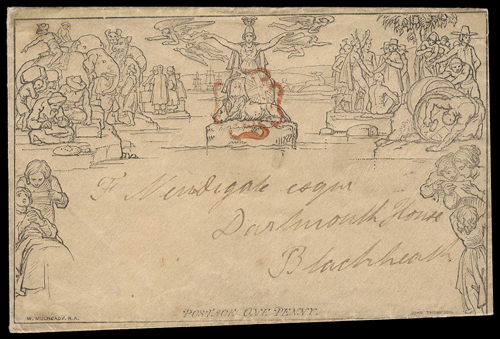 F. Newdigate esqur
Dartmouth House
Blackheath
POSTAGE ONE PENNY.
W. MULREADY. R.A.
JOHN THOMPSON